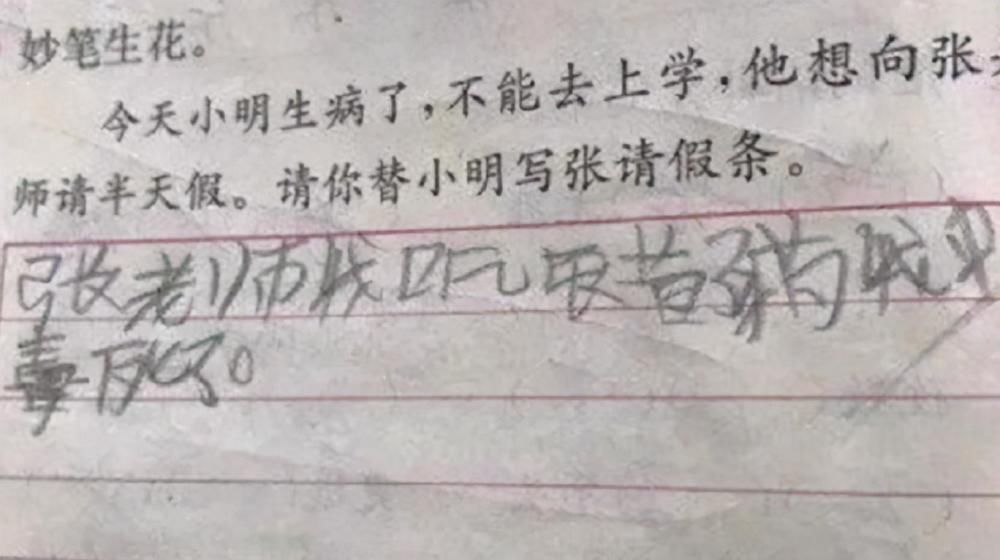 妙笔生花。
今天小明生病了，不能去上学，他想向张
师请半天假。请你替小明写张请假条。
张老师我吃药我中
毒死了。